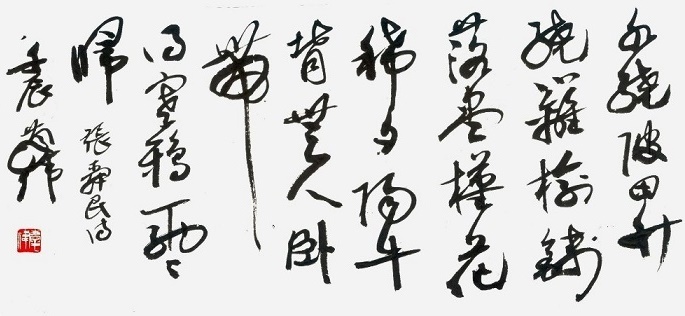 水繞陂田竹
繞籬榆錢
落盡槿花
稀夕陽牛
背無人卧
帶
得寒鴉兩々
歸
張舜民詩
壬辰